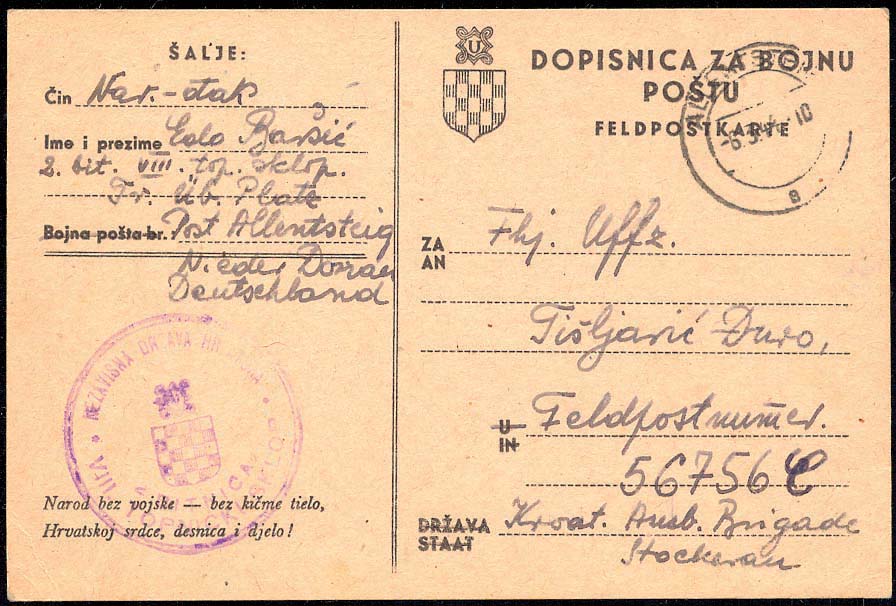 ŠALJE:
Čin Nar.-đak
Ime i prezime Edo Baršić
2. bit. VIII. top. sklop.
Tr. Üb. Platz
Bojna pošta br. Post Allentsteig
Nieder Donau
Deutschland
NEZAVISNA DRŽAVA HRVATSKA
VIII
Narod bez vojske — bez kičme tielo,
Hrvatskoj srdce, desnica i djelo!
U
DOPISNICA ZA BOJNU
POŠTU
FELDPOSTKARTE
-6.3.44-10
a
ZA
AN
Fhj. Uffz.
Tišljarić Đuro,
U
IN
Feldpostnum̄er.
56756 C
DRŽAVA
STAAT
Kroat. Ausb. Brigade
Stockerau